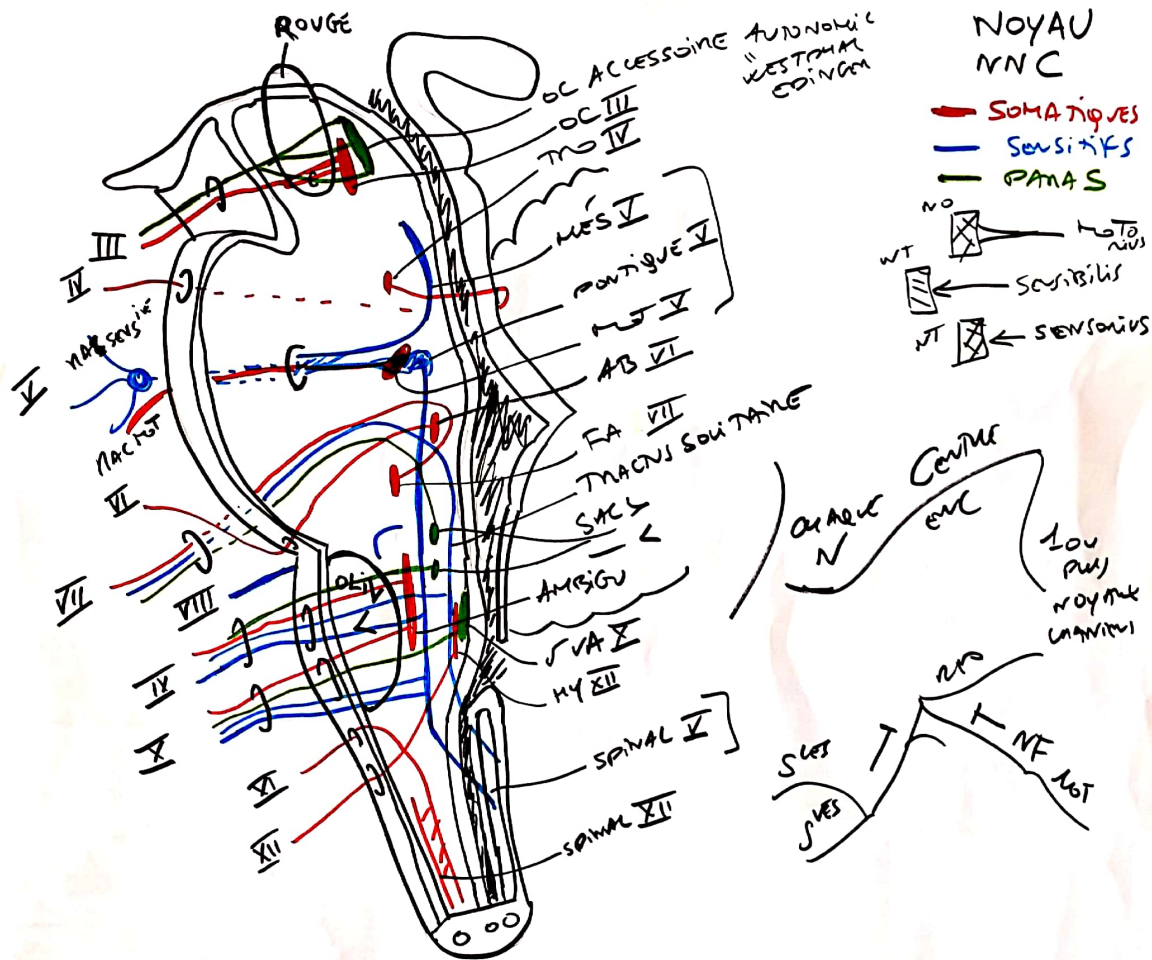 ROUGE
OC ACCESSOIRE AUTONOMIC
"
WESTPHAL
EDINGER
OC III
TRO IV
MÉS V
PONTIQUE V
MOT V
AB VI
FA VII
TRACTUS SOLITAIRE
SALS
AMBIGU
HY XII
SPINAL V
SPINAL XII
III
IV
V
RAC MOT
VI
VII
VIII
IX
X
XI
XII
OLIV
NOYAU
NNC
SOMATIQUES
SENSITIFS
PARA S
NO
NT
SENSIBILIS
NT
SENSORIUS
CHAQUE
N
CENTRE
ENC
1 OU
PLUS
NOYAUX
CRANIENS
NF